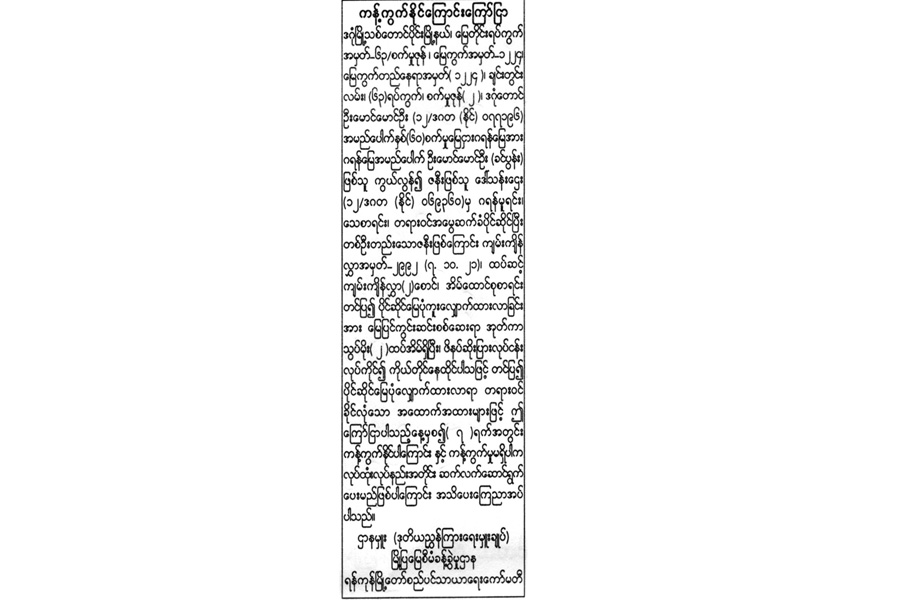 ကန့်ကွက်နိုင်ကြောင်းကြော်ငြာ
ဒဂုံမြို့သစ်တောင်ပိုင်းမြို့နယ်၊ မြေတိုင်းရပ်ကွက်
အမှတ်-၆၃/စက်မှုဇုန်၊ မြေကွက်အမှတ်-၁၂၂၄၊
မြေကွက်တည်နေရာအမှတ်(၁၂၂၄)၊ ချင်းတွင်း
လမ်း၊ (၆၃)ရပ်ကွက်၊ စက်မှုဇုန်(၂)၊ ဒဂုံတောင်
ဦးမောင်မောင်ဦး (၁၂/ဒဂတ (နိုင်) ၀၇၇၁၉၆)
အမည်ပေါက်နှစ်(၆၀)စက်မှုမြေငှားဂရန်မြေအား
ဂရန်မြေအမည်ပေါက် ဦးမောင်မောင်ဦး (ခင်ပွန်း)
ဖြစ်သူ ကွယ်လွန်၍ ဇနီးဖြစ်သူ ဒေါ်သန်းဌေး
(၁၂/ဒဂတ (နိုင်) ၀၆၉၃၆၀)မှ ဂရန်မူရင်း၊
သေစာရင်း၊ တရားဝင်အမွေဆက်ခံပိုင်ဆိုင်ပြီး
တစ်ဦးတည်းသောဇနီးဖြစ်ကြောင်း ကျမ်းကျိန်
လွှာအမှတ်-၂၉၉၂ (၇. ၁၀. ၂၁)၊ ထပ်ဆင့်
ကျမ်းကျိန်လွှာ(၂)စောင်၊ အိမ်ထောင်စုစာရင်း
တင်ပြ၍ ပိုင်ဆိုင်မြေပုံကူးလျှောက်ထားလာခြင်း
အား မြေပြင်ကွင်းဆင်းစစ်ဆေးရာ အုတ်ကာ
သွပ်မိုး(၂)ထပ်အိမ်ရှိပြီး၊ ဖိနပ်ဆိုးပြားလုပ်ငန်း
လုပ်ကိုင်၍ ကိုယ်တိုင်နေထိုင်ပါသဖြင့် တင်ပြ၍
ပိုင်ဆိုင်မြေပုံလျှောက်ထားလာရာ တရားဝင်
ခိုင်လုံသော အထောက်အထားများဖြင့် ဤ
ကြော်ငြာပါသည့်နေ့မှစ၍( ၇ )ရက်အတွင်း
ကန့်ကွက်နိုင်ပါကြောင်း နှင့် ကန့်ကွက်မှုမရှိပါက
လုပ်ထုံးလုပ်နည်းအတိုင်း ဆက်လက်ဆောင်ရွက်
ပေးမည်ဖြစ်ပါကြောင်း အသိပေးကြေညာအပ်
ပါသည်။
ဌာနမှူး (ဒုတိယညွှန်ကြားရေးမှူးချုပ်)
မြို့ပြမြေစီမံခန့်ခွဲမှုဌာန
ရန်ကုန်မြို့တော်စည်ပင်သာယာရေးကော်မတီ